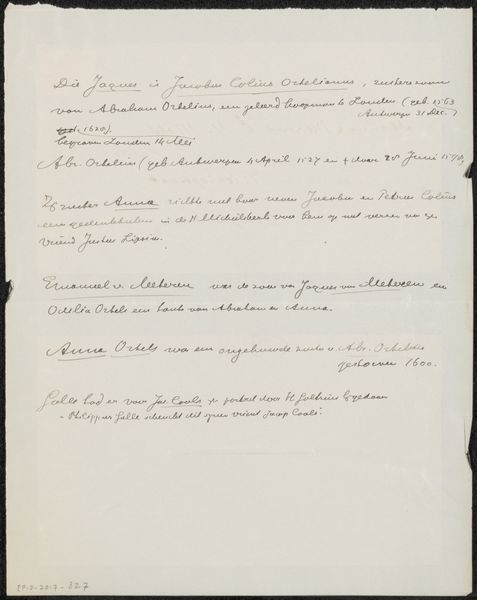 Die Jaques is Jacobus Colius Ortelianus, zusterszoon
van Abraham Ortelius, een geleerd koopman te Londen (geb. 1563
Antwerpen 31 Dec.
1628)
begraven Londen 14 Mei
Abr. Ortelius (geb Antwerpen 4 April 1527 en † daar 28 Juni 1598)
Zijn zuster Anna richtte met haar neven Jacobus en Petrus Colius
een gedenkteken in de St Michielskerk voor hem op met verzen van zijn
vriend Justus Lipsius.
Emanuel v. Meteren was de zoon van Jaques van Meteren en
Odilia Ortels een tante van Abraham en Anna.
Anna Ortels was een ongehuwde zuster v. Abr. Ortelius
gestorven 1600.
Galle had er voor Jac Cools zijn portret door H Goltzius
- Philippus Galle schenckt dit synen vrient Jacop Cools.
RP-D-2017-827